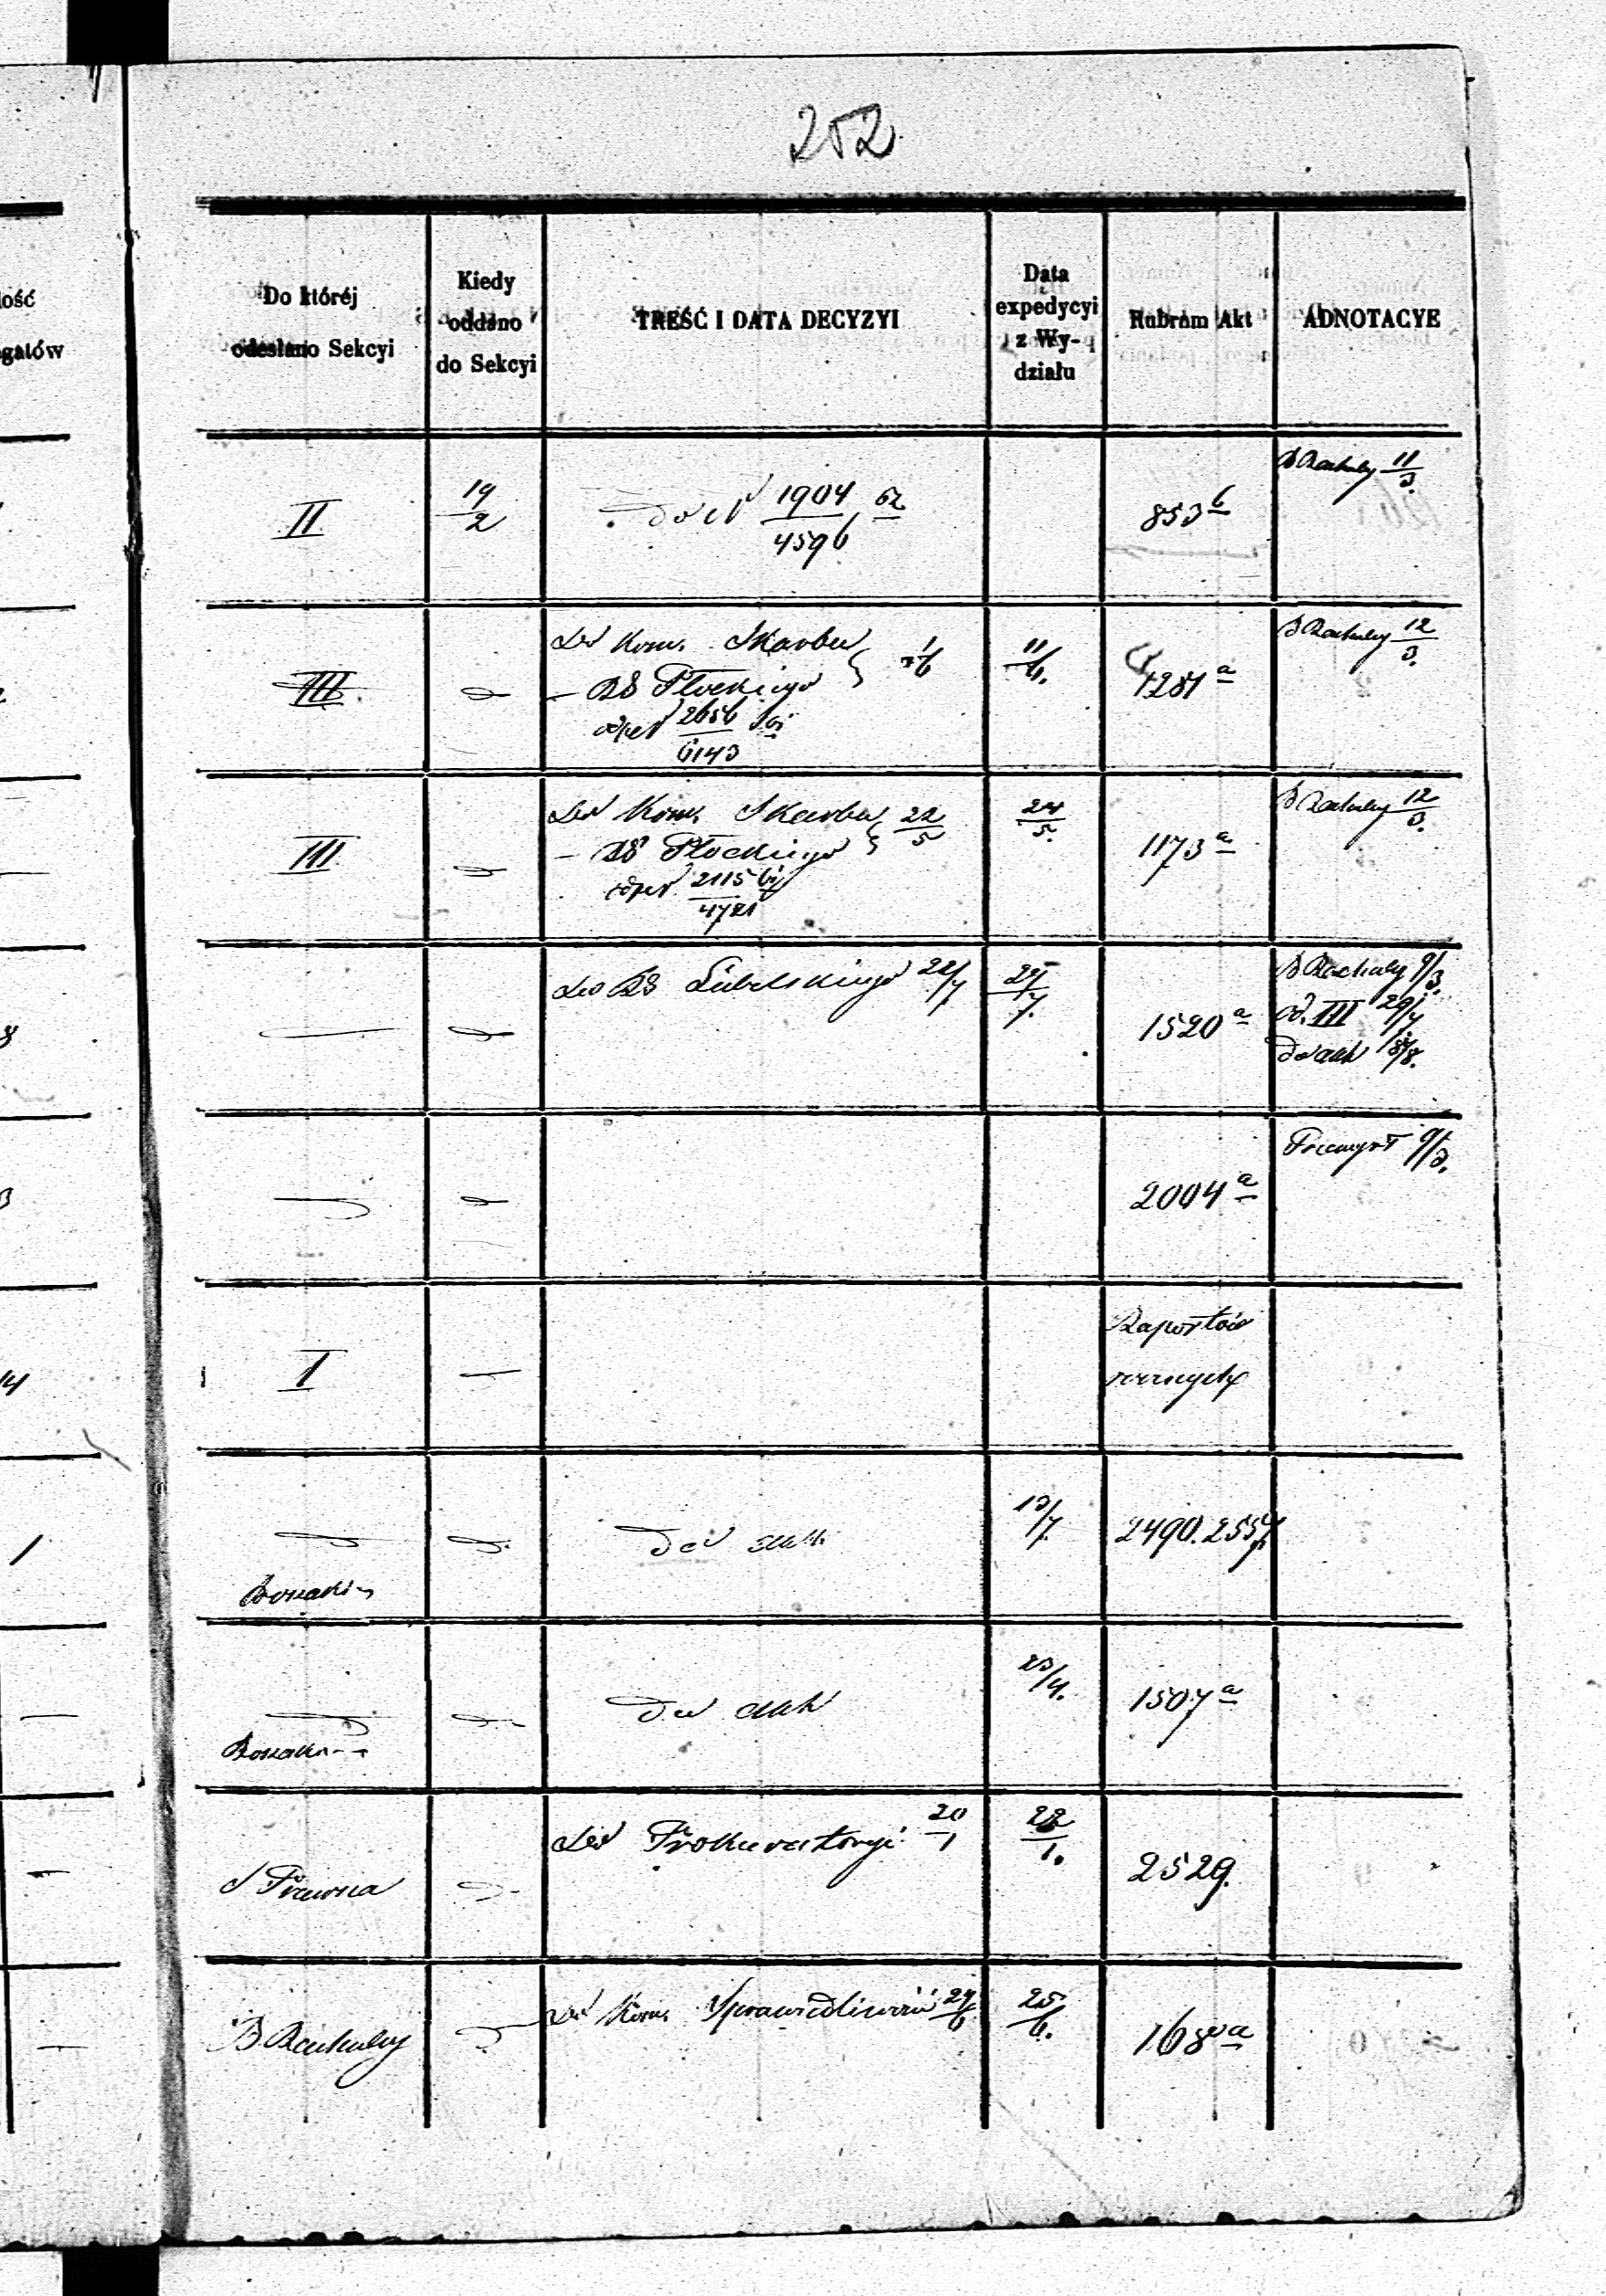 252
lość
gatów
Do któréj
odesłano Sekcyi
Kiedy
oddano
do Sekcyi
TREŚĆ I DATA DECYZYI
Data
expedycyi
z Wy-
działu
Rubrum Akt
ADNOTACYE
II
19/2
do N 1904/4596 62
853 b
B Rachuby 11/3.
III
Do Kom. Skarbu
— RG Płockiego
1/6
2656/6143
11/6.
1281 a
B Rachuby 12/3.
III
Do Kom. Skarbu
— RG Płockiego
22/5
2115/4721
24/5.
1173 a
B Rachuby 12/3.
Do RG Lubelskiego 22/7
25/7.
1520 a
B Rachuby 9/3.
od. III 29/7
do akt 18/8.
2004 a
Przemysł 9/3.
I
—
Raportów
rocznych
do akt.
13/7.
2490. 2557
do akt
23/4.
1507 a
S Prawna
Do Prokuratoryi 20/1
22/1.
2529.
B Rachuby
Do Kom. Sprawiedliwości 24/6
25/6.
168 a